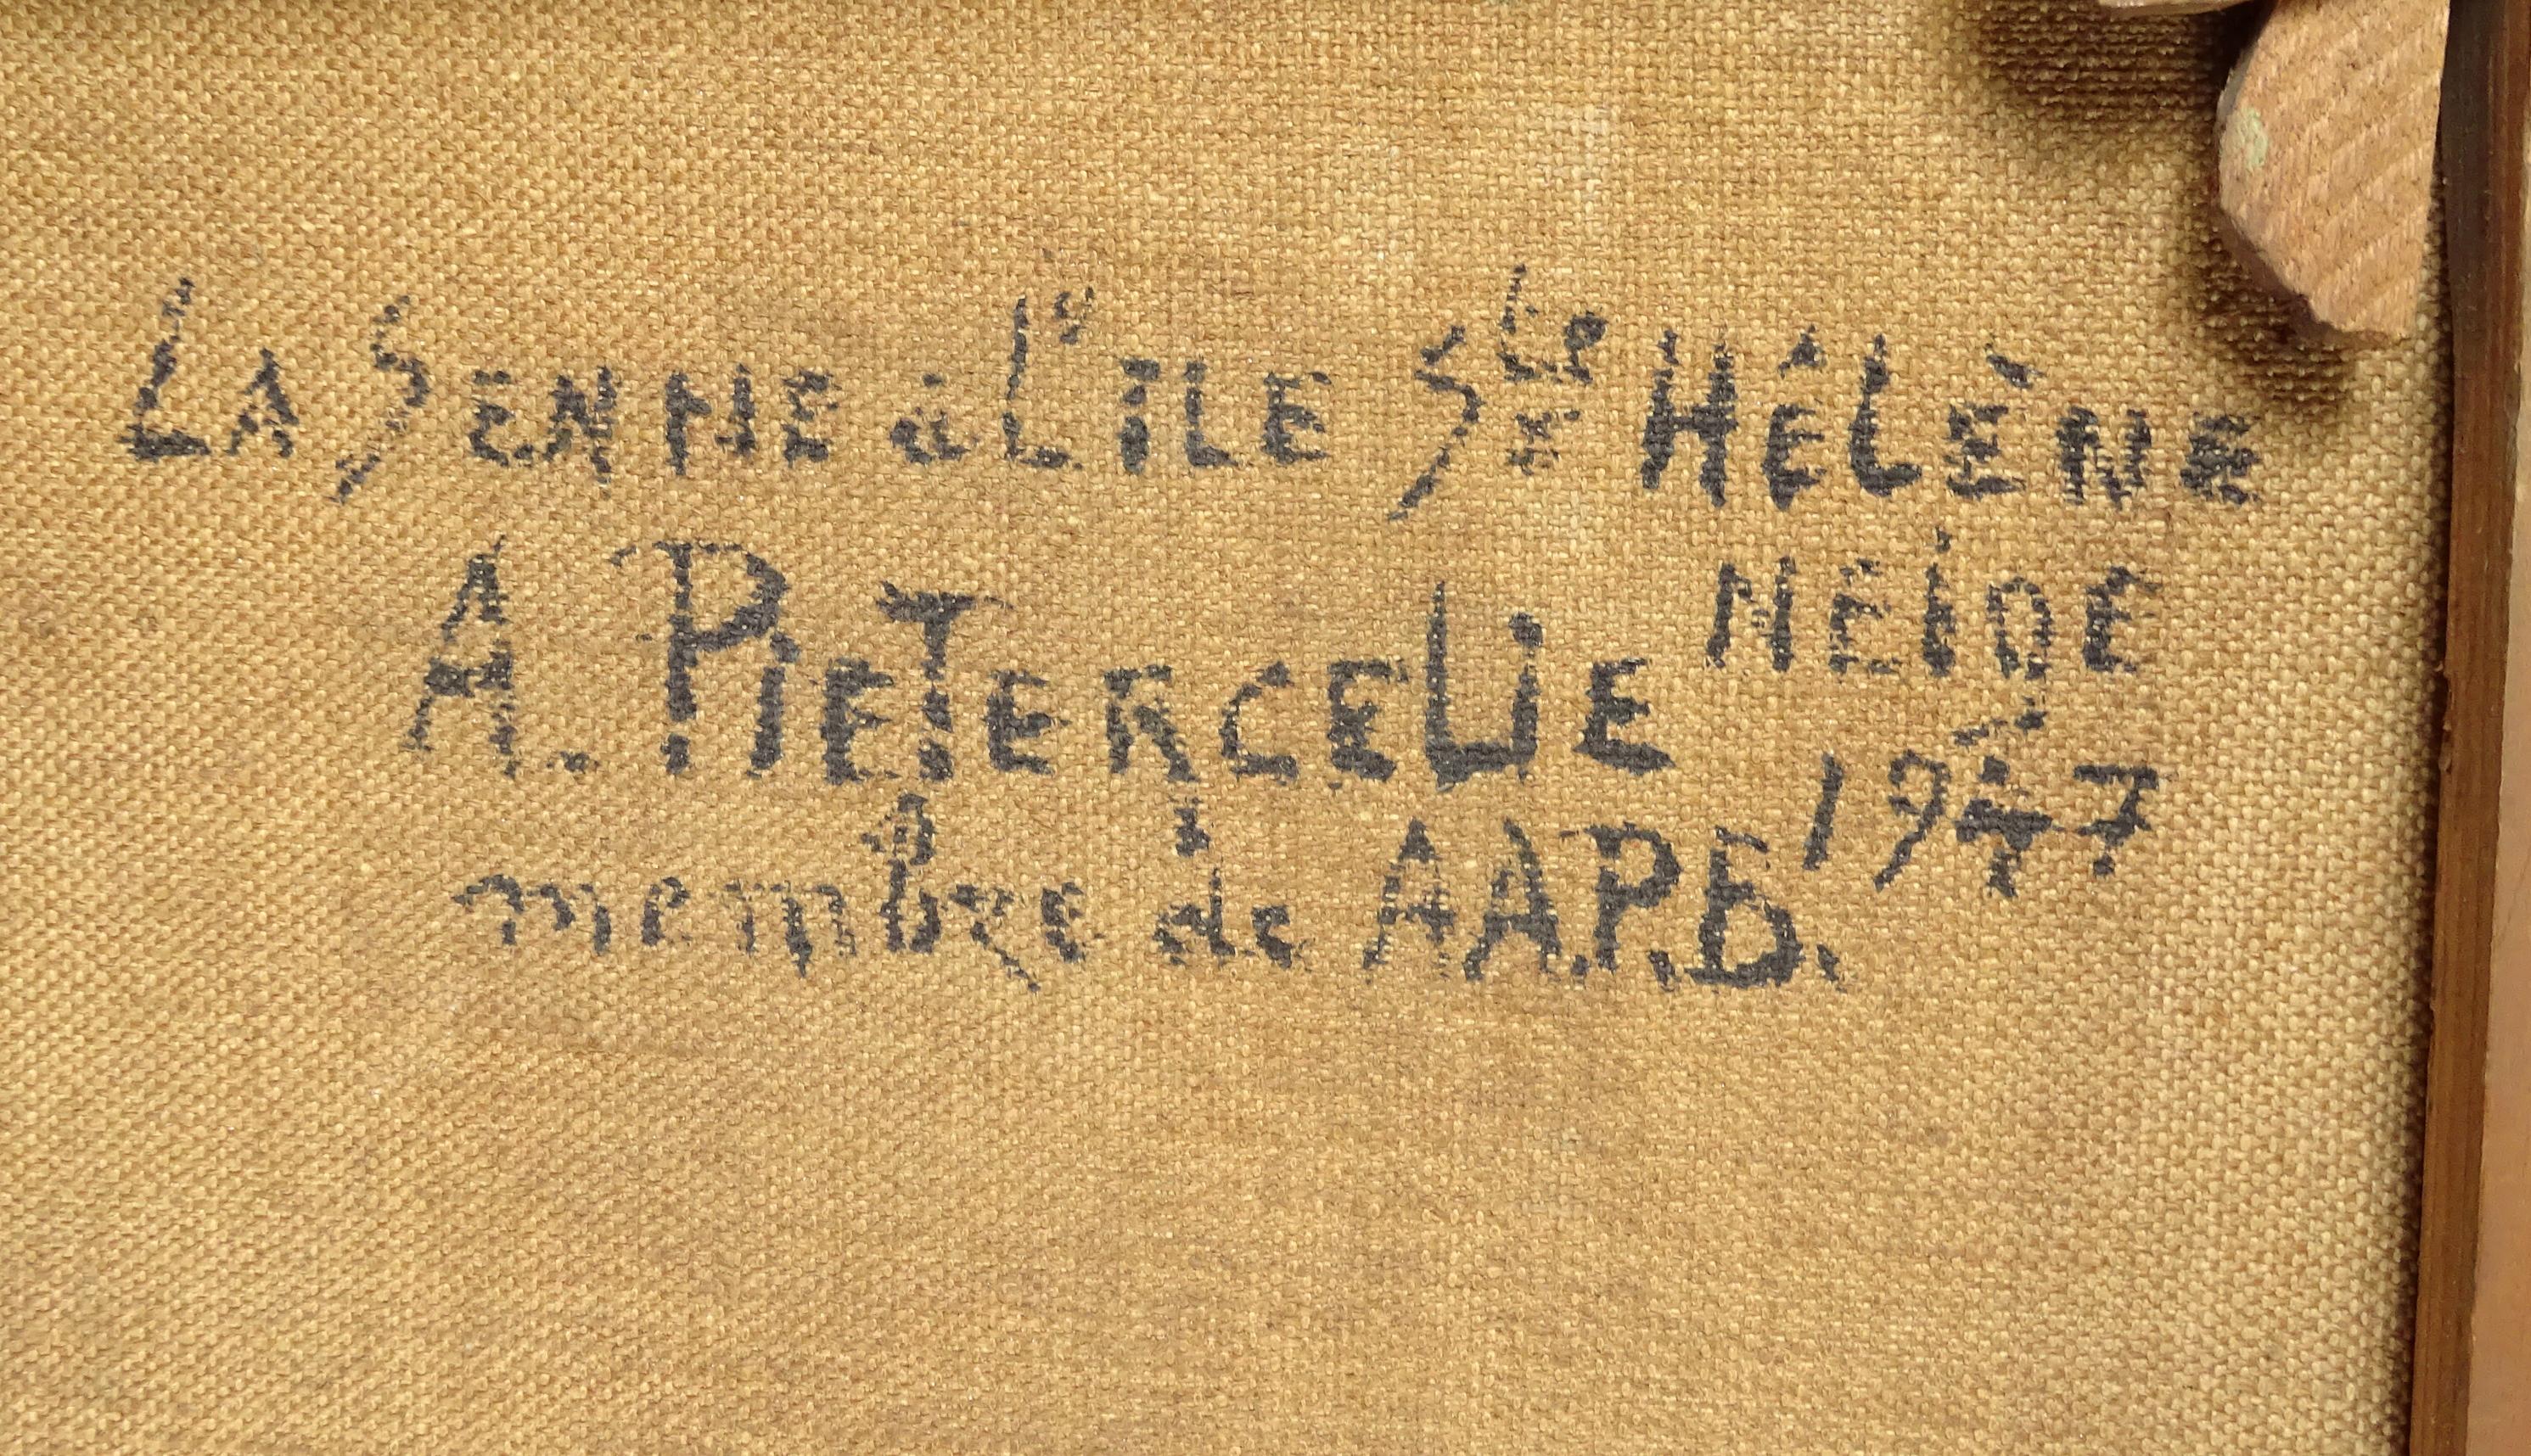 LA SENNE à L'ÎLE Ste HÉLÈNE
NEIGE
A. PIETERCELIE
1947
membre de A.A.P.B.